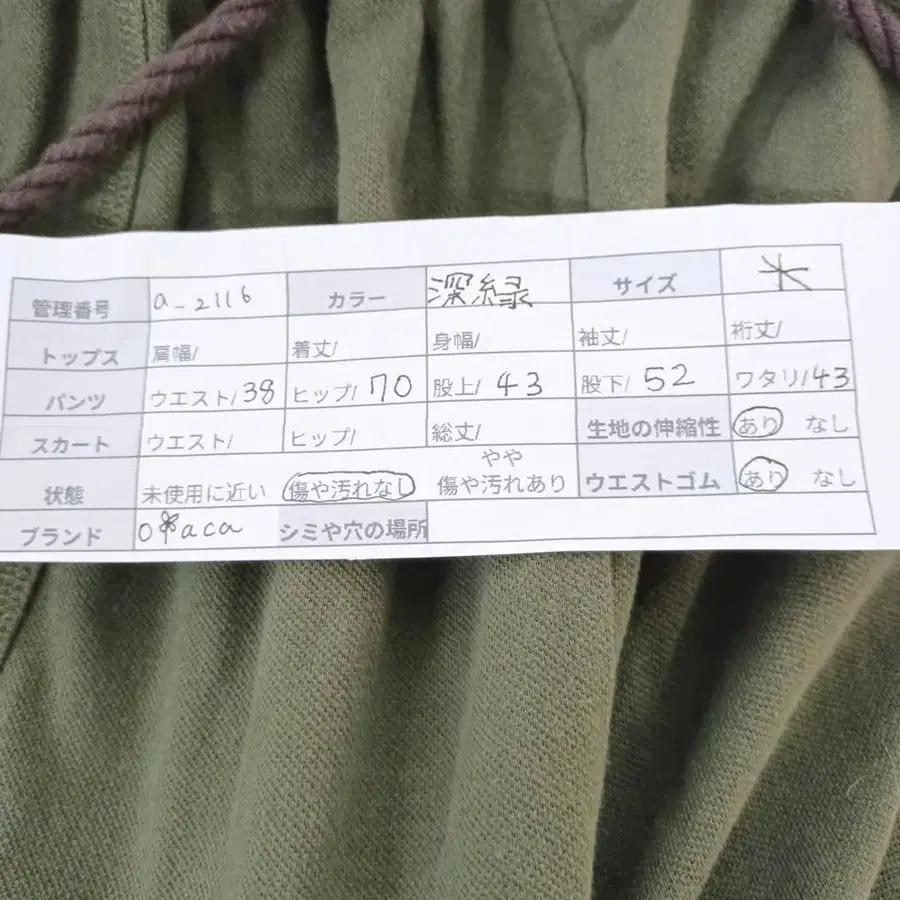 管理番号 a-2116 カラー 深緑 サイズ
トップス 肩幅/ 着丈/ 身幅/ 袖丈/ 裄丈/
パンツ ウエスト/38 ヒップ/70 股上/43 股下/52 ワタリ/43
スカート ウエスト/ ヒップ/ 総丈/ 生地の伸縮性 あり なし
状態 未使用に近い 傷や汚れなし やや傷や汚れあり ウエストゴム あり なし
ブランド シミや穴の場所